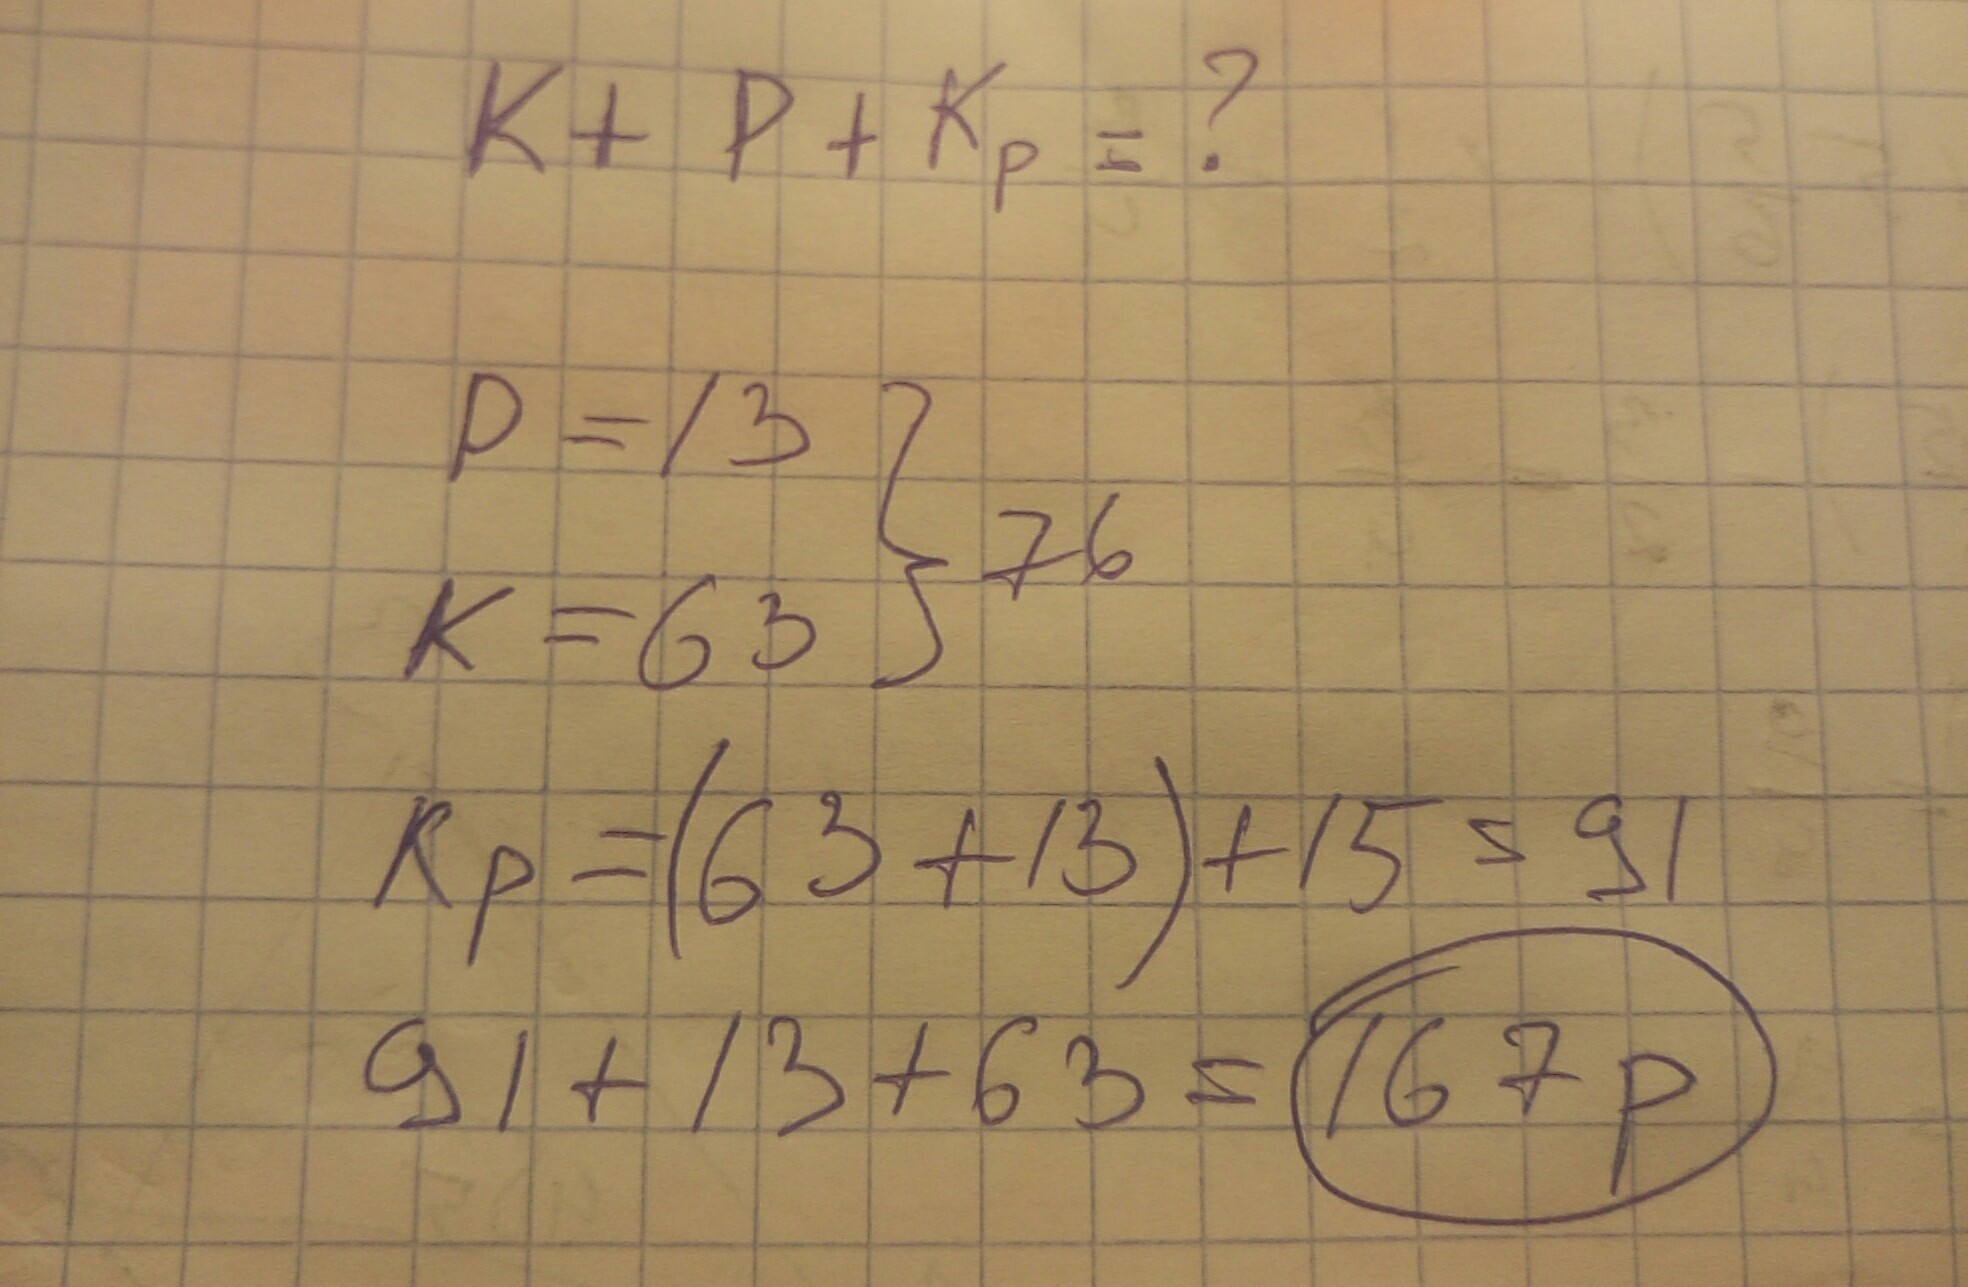 K + P + Kр = ?
P = 13
K = 63
} 76
Kр = (63 + 13) + 15 = 91
91 + 13 + 63 = 167 р